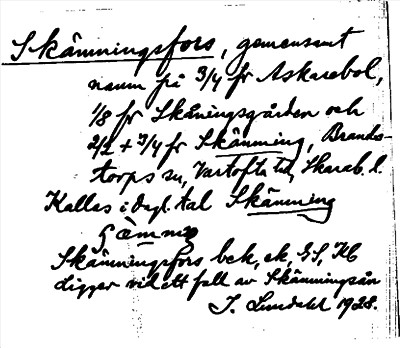 Skämningsfors, gemensamt
namn på 3/4 fr Askarebol,
1/8 fr Skäningsgården och
2/2 + 3/4 fr Skämming, Brands-
torps sn, Vartofta hd, Skarab. l.
Kallas i dagl. tal Skämning
Skämningsfors bek, ek, GS, Kb
Ligger vid ett fall av Skämningsån
J. Lundahl 1928.